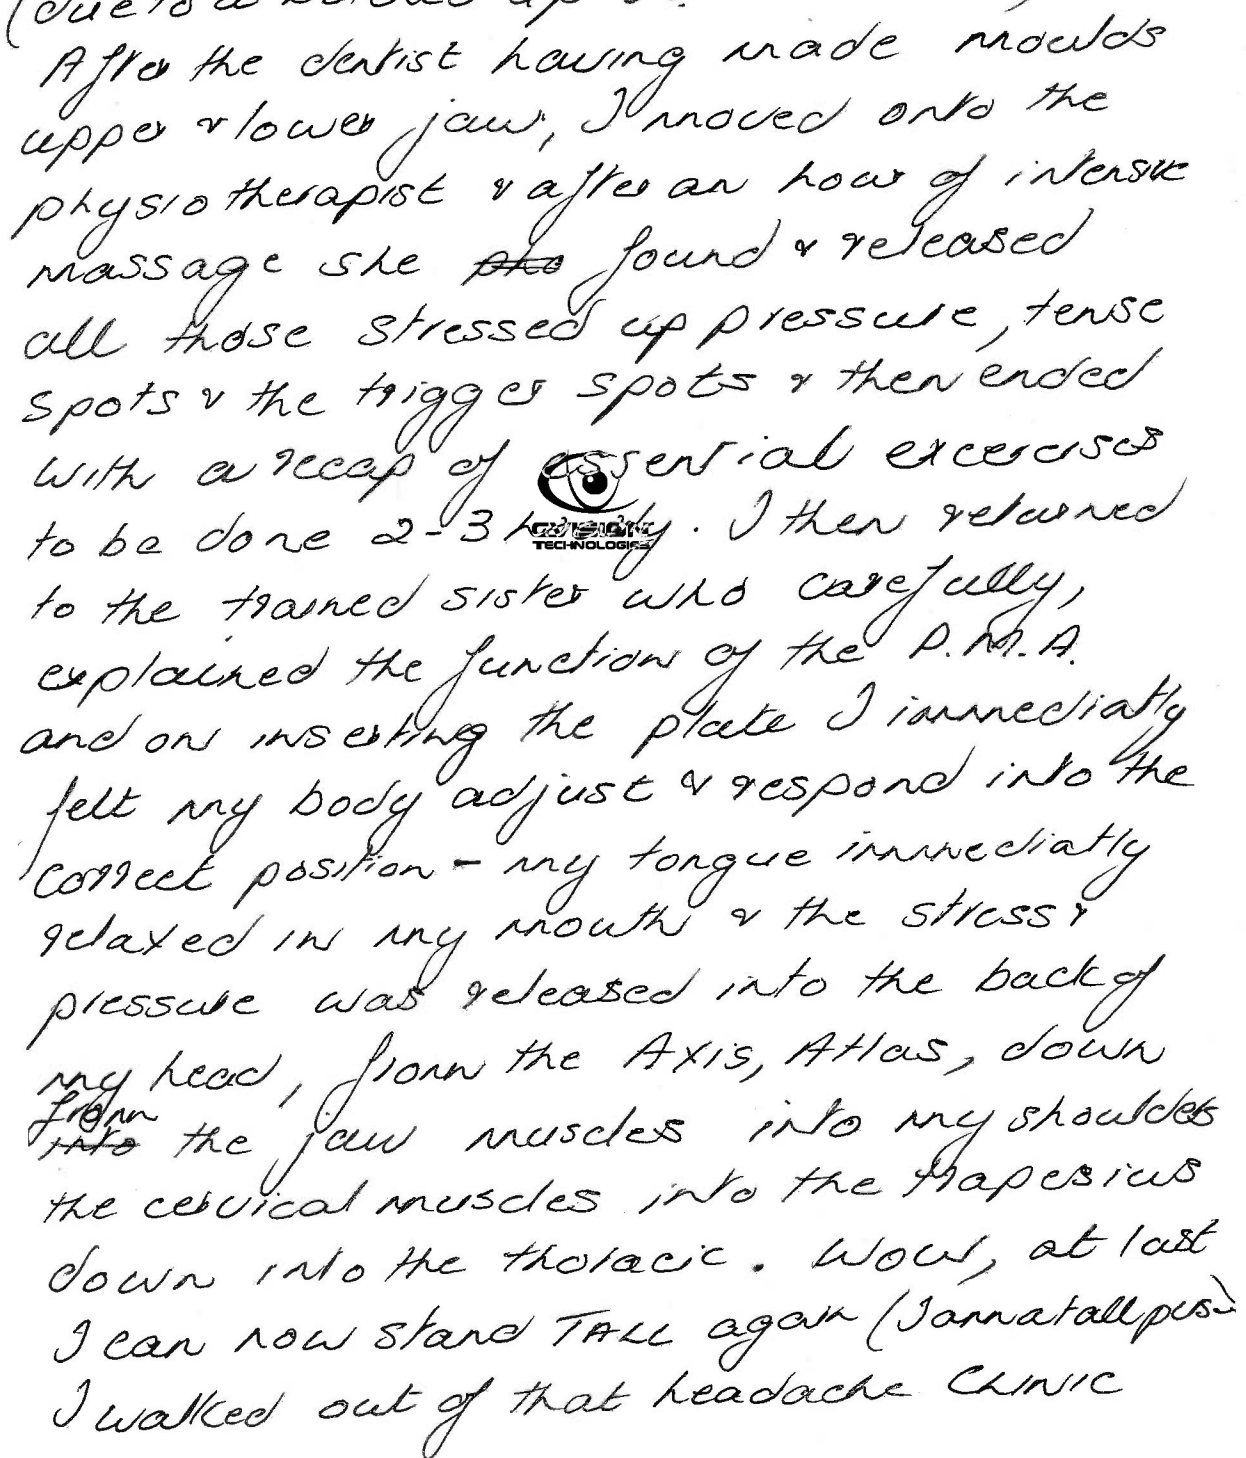 (due to a
After the dentist having made moulds
upper & lower jaw, I moved onto the
physiotherapist & after an hour of intensive
massage she pho found & released
all those stressed up pressure, tense
spots & the trigger spots & then ended
with a recap of essential excercises
to be done 2-3 hourly. I then returned
TECHNOLOGIES
to the trained sister who carefully,
explained the function of the P.M.A.
and on inserting the plate I immediatly
felt my body adjust & respond into the
correct position - my tongue immediatly
relaxed in my mouth & the stress &
pressure was released into the back of
my head, from the Axis, Atlas, down
from
into the jaw muscles into my shoulders
the cervical muscles into the trapesius
down into the thoracic. Wow, at last
I can now stand TALL again (I am a tall
I walked out of that headache CLINIC